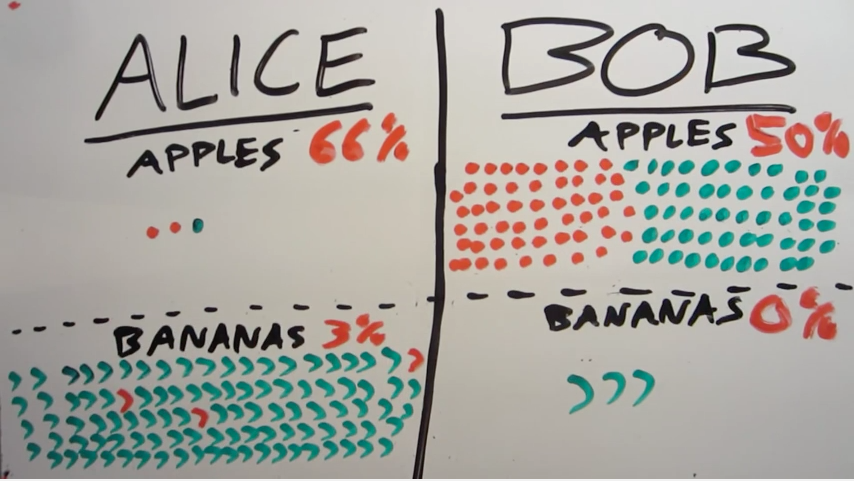 ALICE
APPLES 66%
BANANAS 3%
BOB
APPLES 50%
BANANAS 0%